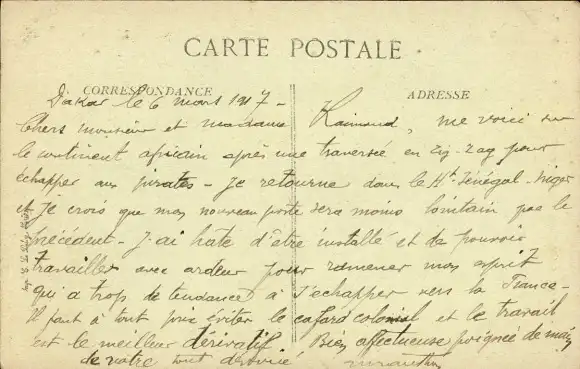 CARTE POSTALE
CORRESPONDANCE
ADRESSE
Dakar le 6 mars 1917 -
Chers monsieur et madame Raimond, me voici sur
le continent africain après une traversée en zig-zag pour
échapper aux pirates - Je retourne dans le Ht Sénégal - Niger
et je crois que mon nouveau poste sera moins lointain que le
précédent - J'ai hâte d'être installé et de pouvoir
travailler avec ardeur pour ramener mon esprit
qui a trop de tendance à s'échapper vers la France -
Il faut à tout prix éviter le cafard colonial et le travail
est le meilleur dérivatif Bien affectueuse poignée de main
de votre tout dévoué